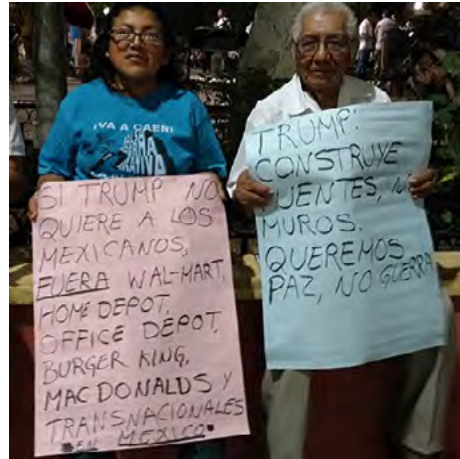 ¡VA A CAER!
SI TRUMP NO
QUIERE A LOS
MEXICANOS,
FUERA WAL-MART,
HOME DEPOT,
OFFICE DEPOT,
BURGER KING,
MAC DONALDS Y
TRANSNACIONALES
EN MEXICO.
TRUMP:
CONSTRUYE
PUENTES, NO
MUROS.
QUEREMOS
PAZ, NO GUERRA